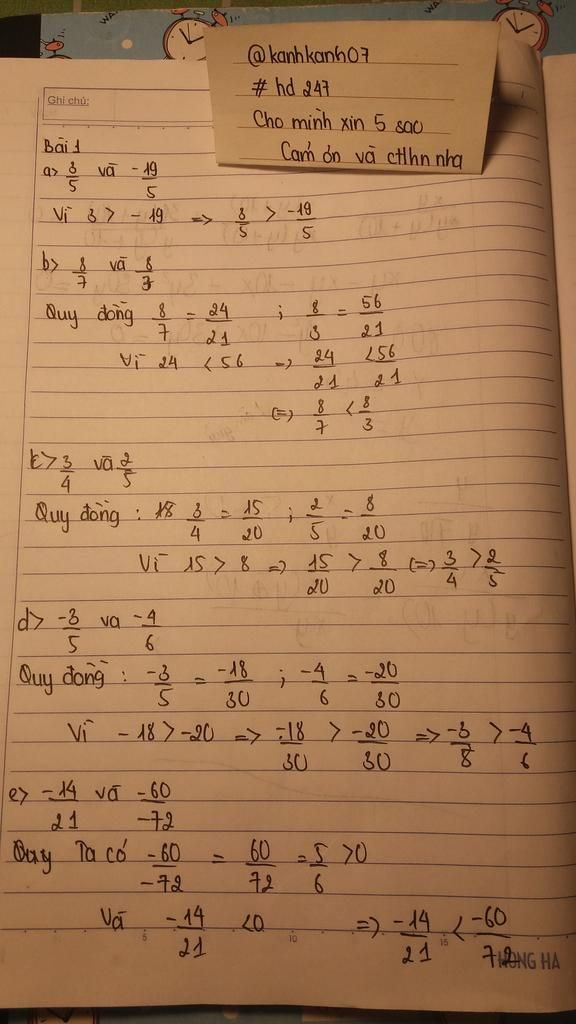 @kanhkanh07
# hd 247
Cho mình xin 5 sao
Cám ơn và ctlhn nha
Ghi chú:
Bài 1
a> 3/5 và -19/5
Vì 3 > -19 => 3/5 > -19/5
b> 8/7 và 8/3
Quy đồng 8/7 = 24/21 ; 8/3 = 56/21
Vì 24 < 56 => 24/21 < 56/21
(=) 8/7 < 8/3
c> 3/4 và 2/5
Quy đồng : 3/4 = 15/20 ; 2/5 = 8/20
Vì 15 > 8 => 15/20 > 8/20 (=) 3/4 > 2/5
d> -3/5 va -4/6
Quy đồng : -3/5 = -18/30 ; -4/6 = -20/30
Vì -18 > -20 => -18/30 > -20/30 => -3/8 > -4/6
e> -14/21 và -60/-72
Quy Ta có -60/-72 = 60/72 = 5/6 > 0
Và -14/21 < 0 => -14/21 < -60/72
5 10 15
HONG HA